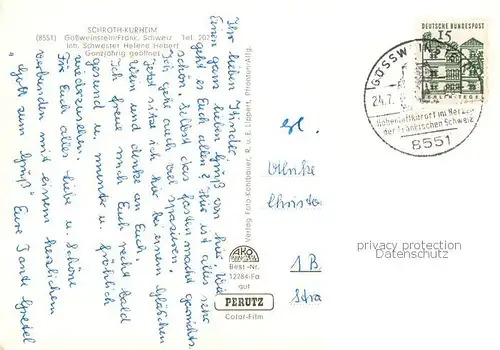 SCHROTH-KURHEIM
(8551) Gößweinstein/Fränk. Schweiz Tel. 207
Inh. Schwester Helene Habert
Ganzjährig geöffnet
Ihr lieben Kinder,
Einen ganz lieben Gruß von hier. Wie
geht es Euch allen? Hier ist alles sehr
schön, selbst das fasten macht garnichts.
Ich geh auch viel spazieren.
Jetzt sitze ich hier bei einem Gläschen
Wein und denke an Euch.
Ich freue mich Euch recht bald
gesund u. munter u. fröhlich
wiederzusehen.
Für Euch alles Liebe u. Schöne
verbunden mit einem herzlichen
"Gott zum Gruß" Eure Tante Gretel
Verlag Foto-Kohlbauer, R. u. E. Lippert, Pfronten-Allg.
AKO
Best.-Nr.
12284-Fa
gut
PERUTZ
Color-Film
DEUTSCHE BUNDESPOST
15
GÖSSWEINSTEIN
24.7.
Höhenluftkurort im Herzen
der Fränkischen Schweiz
8551
1 B
privacy protection
Datenschutz